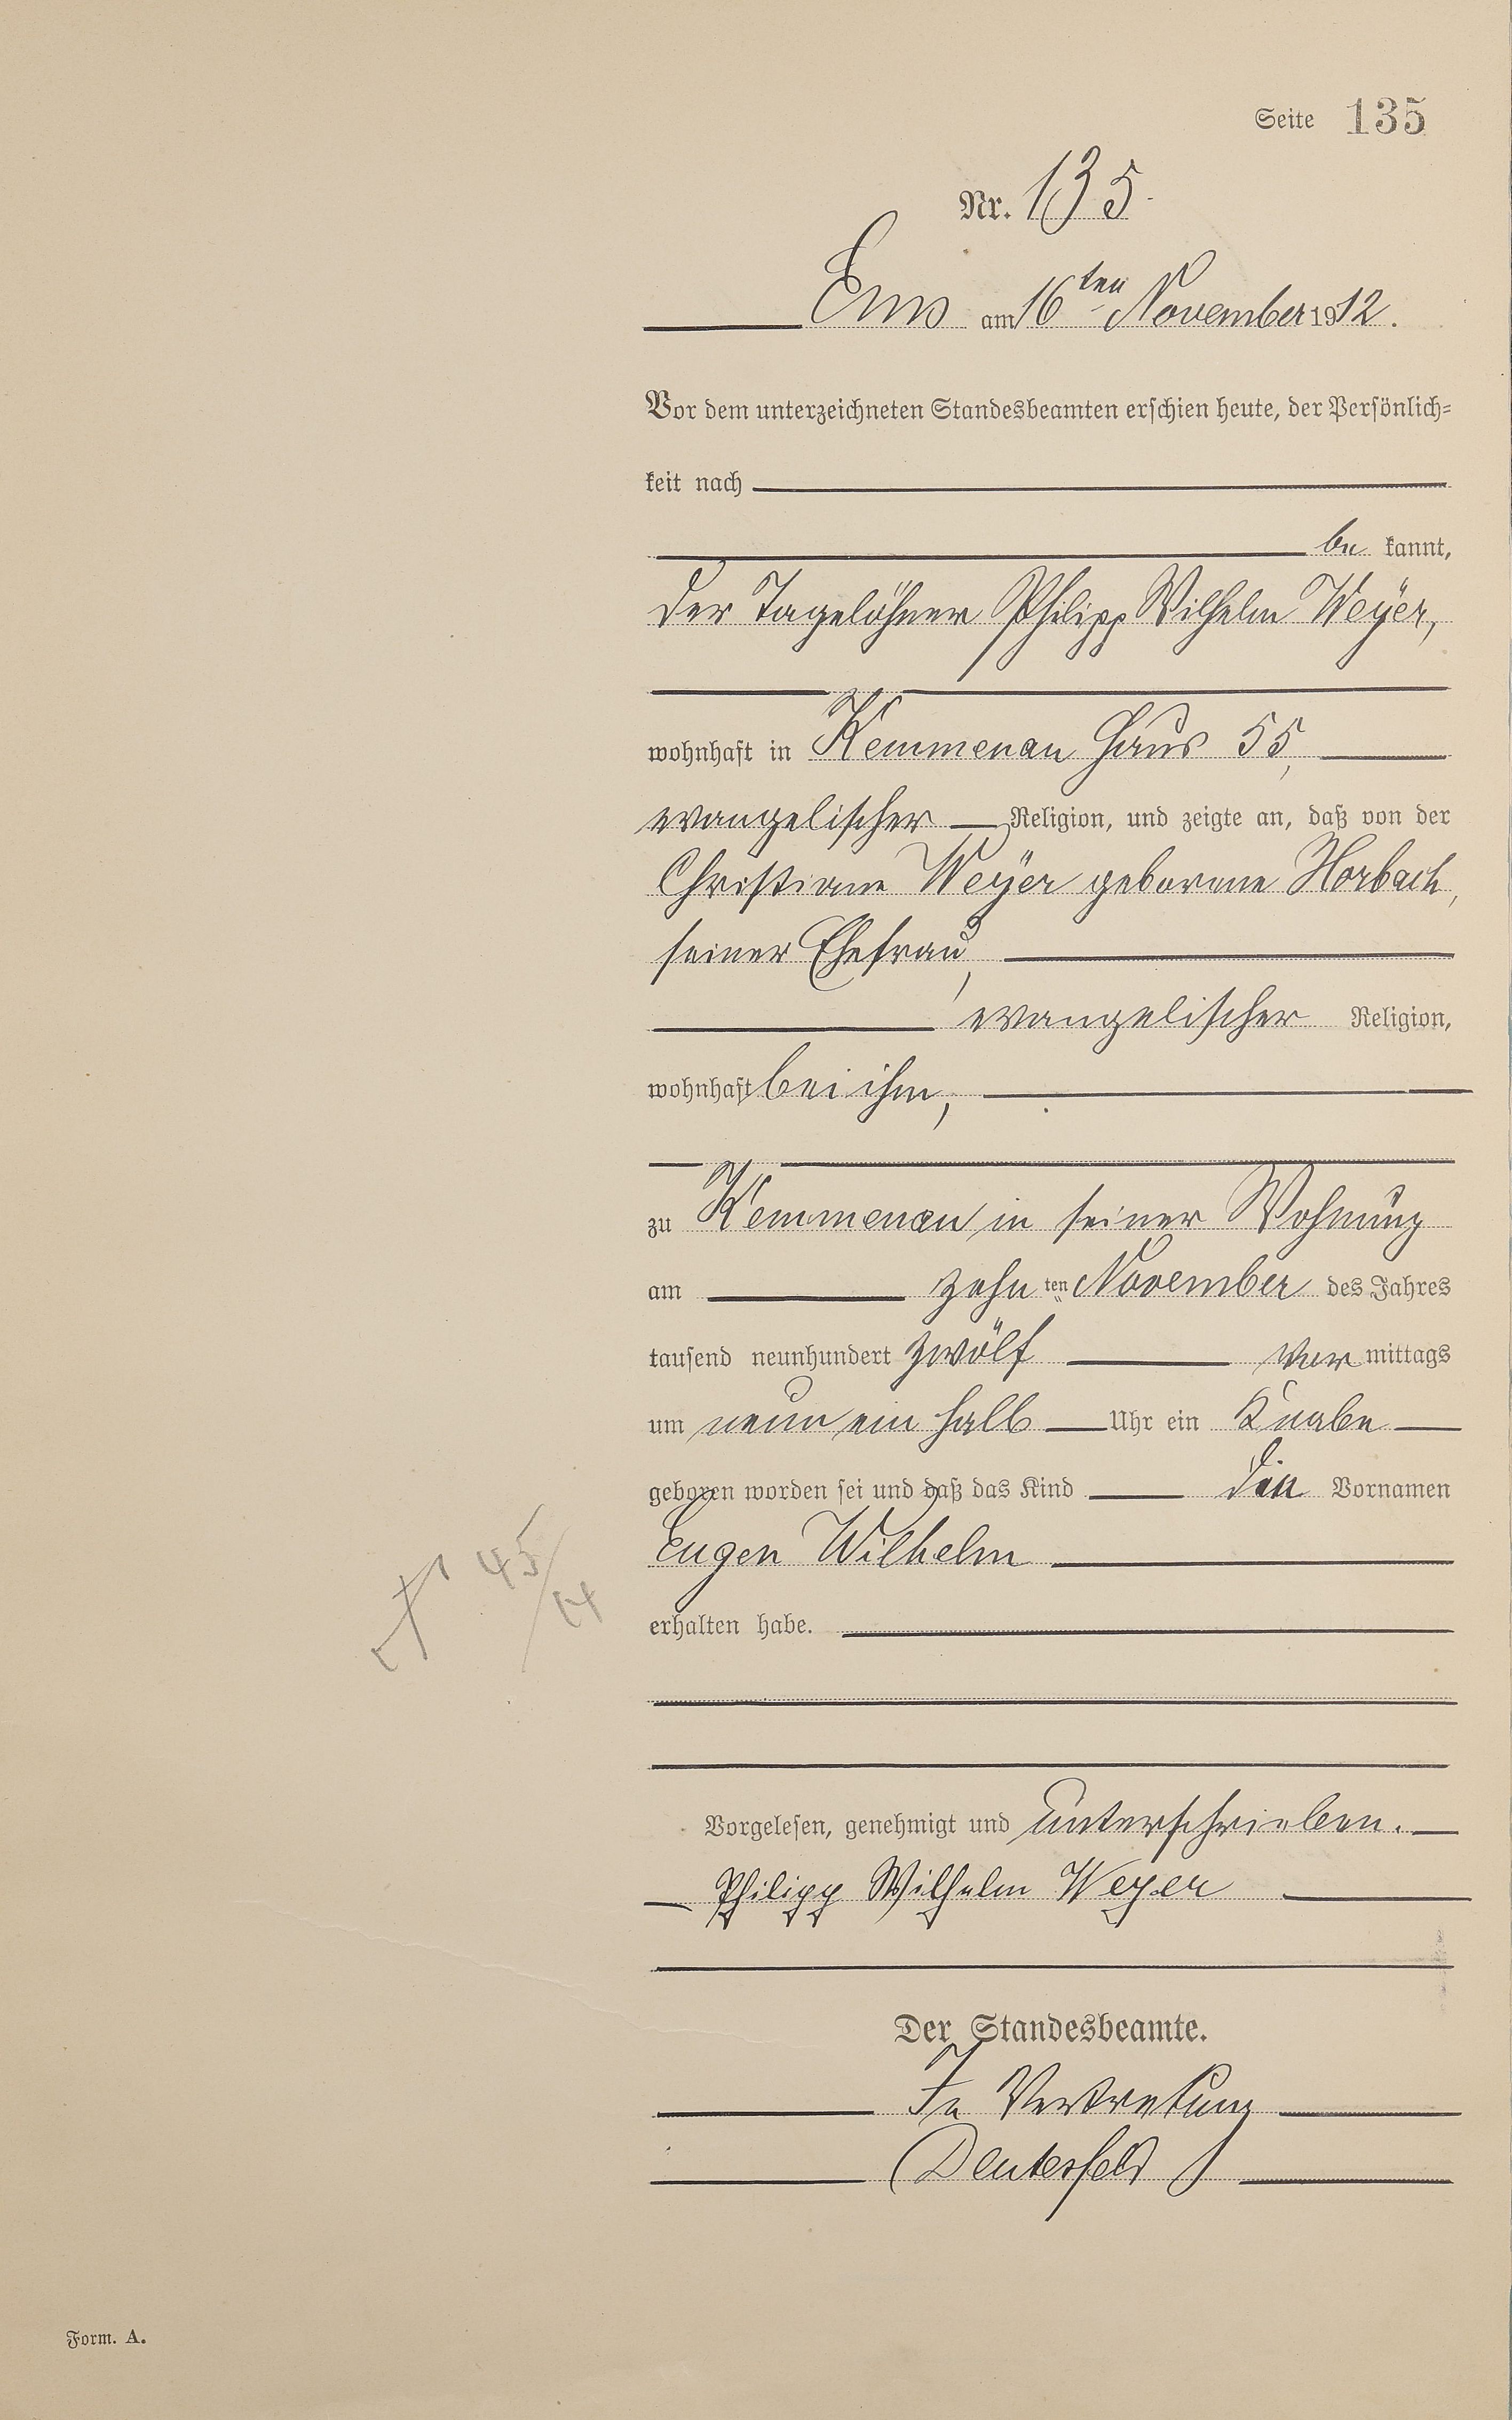 Seite 135
Nr. 135.
Ems am 16ten November 1912.
Vor dem unterzeichneten Standesbeamten erschien heute, der Persönlich-
keit nach
be kannt,
der Tagelöhner Philipp Wilhelm Weyer,
wohnhaft in Kemmenau Haus 55,
evangelischer Religion, und zeigte an, daß von der
Christiane Weyer geborene Horbach,
seiner Ehefrau,
evangelischer Religion,
wohnhaft bei ihm,
zu Kemmenau in seiner Wohnung
am zehn ten November des Jahres
tausend neunhundert zwölf vor mittags
um neun ein halb Uhr ein Knabe
geboren worden sei und daß das Kind die Vornamen
Eugen Wilhelm
† 45/14
erhalten habe.
Vorgelesen, genehmigt und unterschrieben.
Philipp Wilhelm Weyer
Der Standesbeamte.
In Vertretung
Form. A.